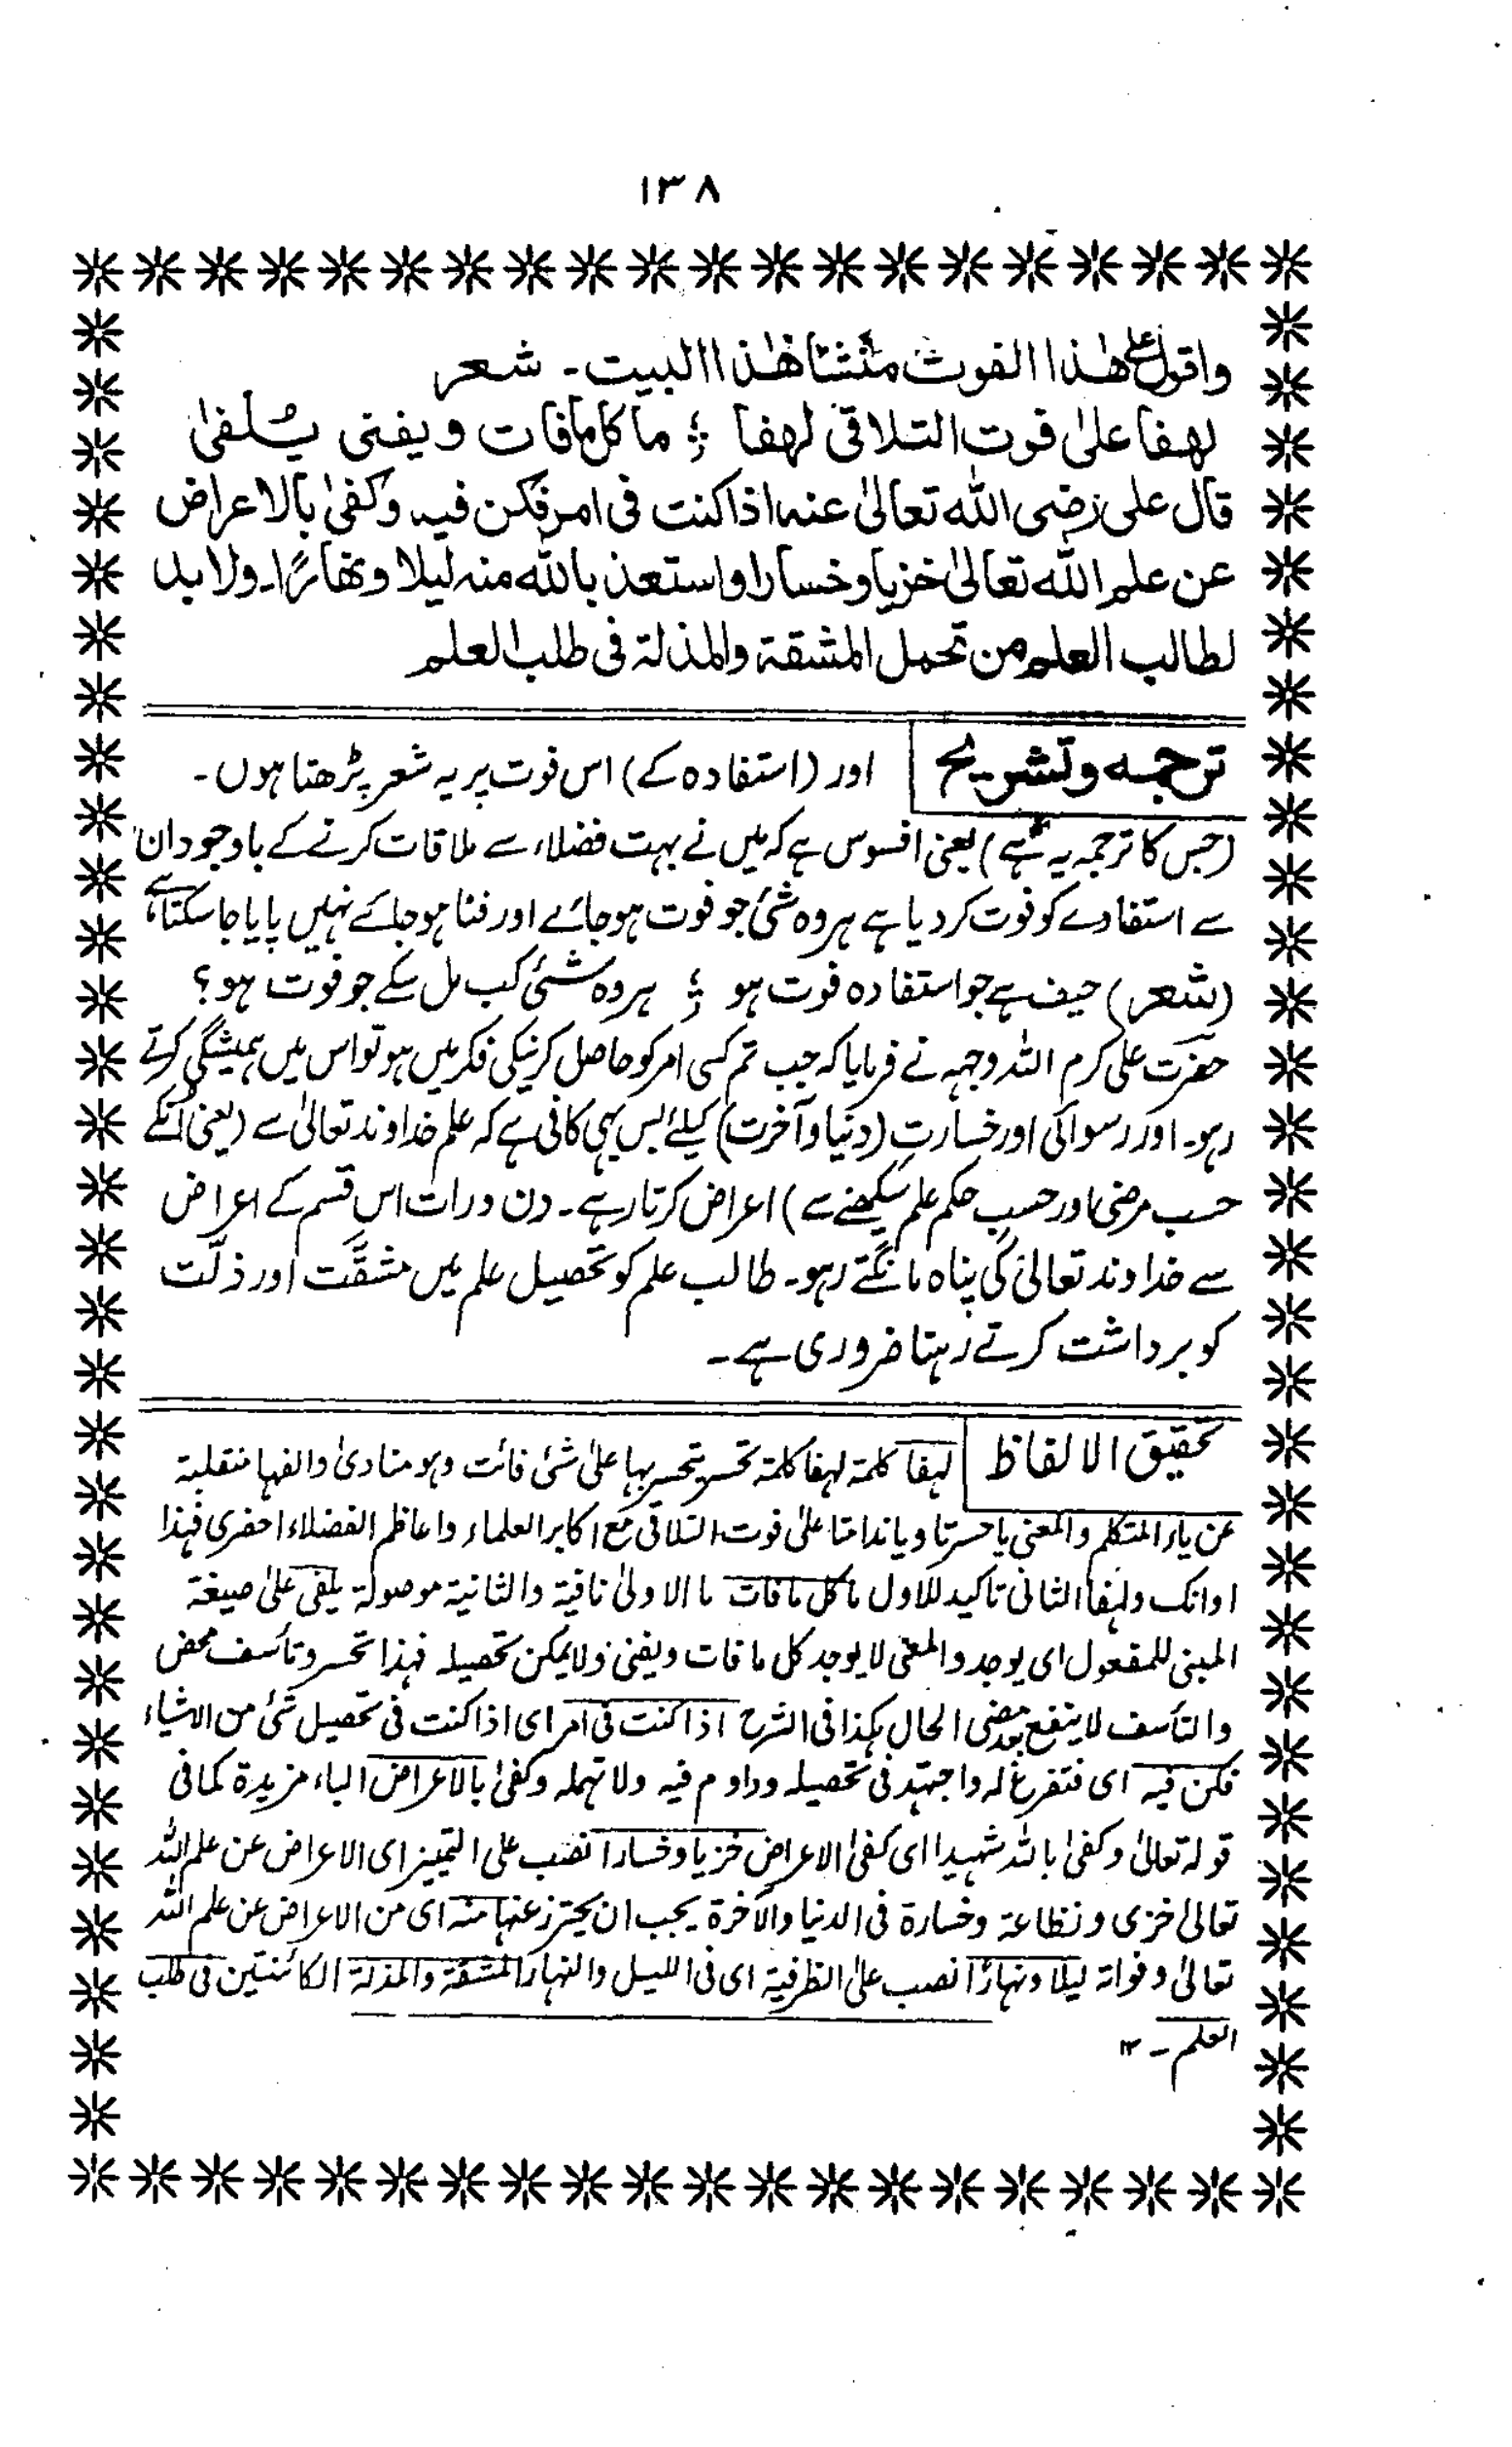 ۱۳۸
واقول علی هٰذا الفوت منشئا هٰذا البیت۔ شعر
لهفا علیٰ فوت التلاقی لهفا ؛ ما کل ما فات ویفنی یُلفیٰ
قال علی رضی اللّٰه تعالیٰ عنه اذا کنت فی امر فکن فیه وکفیٰ بالاعراض
عن علم اللّٰه تعالیٰ خزیا وخسارا واستعذ باللّٰه منه لیلا ونهارًا۔ ولا بد
لطالب العلم من تحمل المشقة والمذلة فی طلب العلم
ترجمہ وتشریح اور (استفادہ کے) اس فوت پر یہ شعر پڑھتا ہوں۔
(جس کا ترجمہ یہ ہے) یعنی افسوس ہے کہ میں نے بہت فضلاء سے ملاقات کرنے کے باوجود ان
سے استفادے کو فوت کر دیا ہے ہر وہ شئ جو فوت ہو جائے اور فنا ہو جائے نہیں پایا جا سکتا ہے
(شعر) حیف ہے جو استفادہ فوت ہو ؛ ہر وہ شئ کب مل سکے جو فوت ہو؟
حضرت علی کرم اللّٰہ وجہہ نے فرمایا کہ جب تم کسی امر کو حاصل کرنیکی فکر میں ہو تو اس میں ہمیشگی کرتے
رہو۔ اور رسوائی اور خسارت (دنیا و آخرت) کیلئے بس یہی کافی ہے کہ علم خداوند تعالیٰ سے (یعنی انکے
حسب مرضی اور حسب حکم علم سیکھنے سے) اعراض کرتا رہے۔ دن و رات اس قسم کے اعراض
سے خداوند تعالیٰ کی پناہ مانگتے رہو۔ طالب علم کو تحصیل علم میں مشقّت اور ذلّت
کو برداشت کرتے رہنا ضروری ہے۔
تحقیق الالفاظ لہفا کلمة لہفا کلمة تحسر یتحسر بہا علیٰ شئ فائت وہو منادیٰ والفہا منقلبة
عن یاء المتکلم والمعنی یا حسرتا ویا ندامتا علیٰ فوت التلاقی مع اکابر العلماء واعاظم الفضلاء احضری فہذا
اوانک ولہفا الثانی تاکید للاول ما کل ما فات ما الاولیٰ نافیة والثانیة موصولة یلفی علیٰ صیغة
المبنی للمفعول ای یوجد والمعنی لا یوجد کل ما فات ویفنی ولا یمکن تحصیلہ فہذا تحسر وتأسف محض
والتأسف لا ینفع بمضی الحال ہکذا فی الشرح اذا کنت فی امر ای اذا کنت فی تحصیل شئ من الاشیاء
فکن فیہ ای فتفرغ لہ واجتہد فی تحصیلہ وداوم فیہ ولا تہملہ وکفیٰ بالاعراض الباء مزیدة کما فی
قولہ تعالیٰ وکفیٰ باللّٰہ شہیدا ای کفیٰ الاعراض خزیا وخسارا نصب علی التمییز ای الاعراض عن علم اللّٰہ
تعالیٰ خزی وفظاعة وخسارة فی الدنیا والآخرة یجب ان یحترز عنہا منہ ای من الاعراض عن علم اللّٰہ
تعالیٰ وفواتہ لیلا ونہارًا نصب علیٰ الظرفیة ای فی اللیل والنہار المشقة والمذلة الکائنتین فی طلب
العلم۔ ۱۲